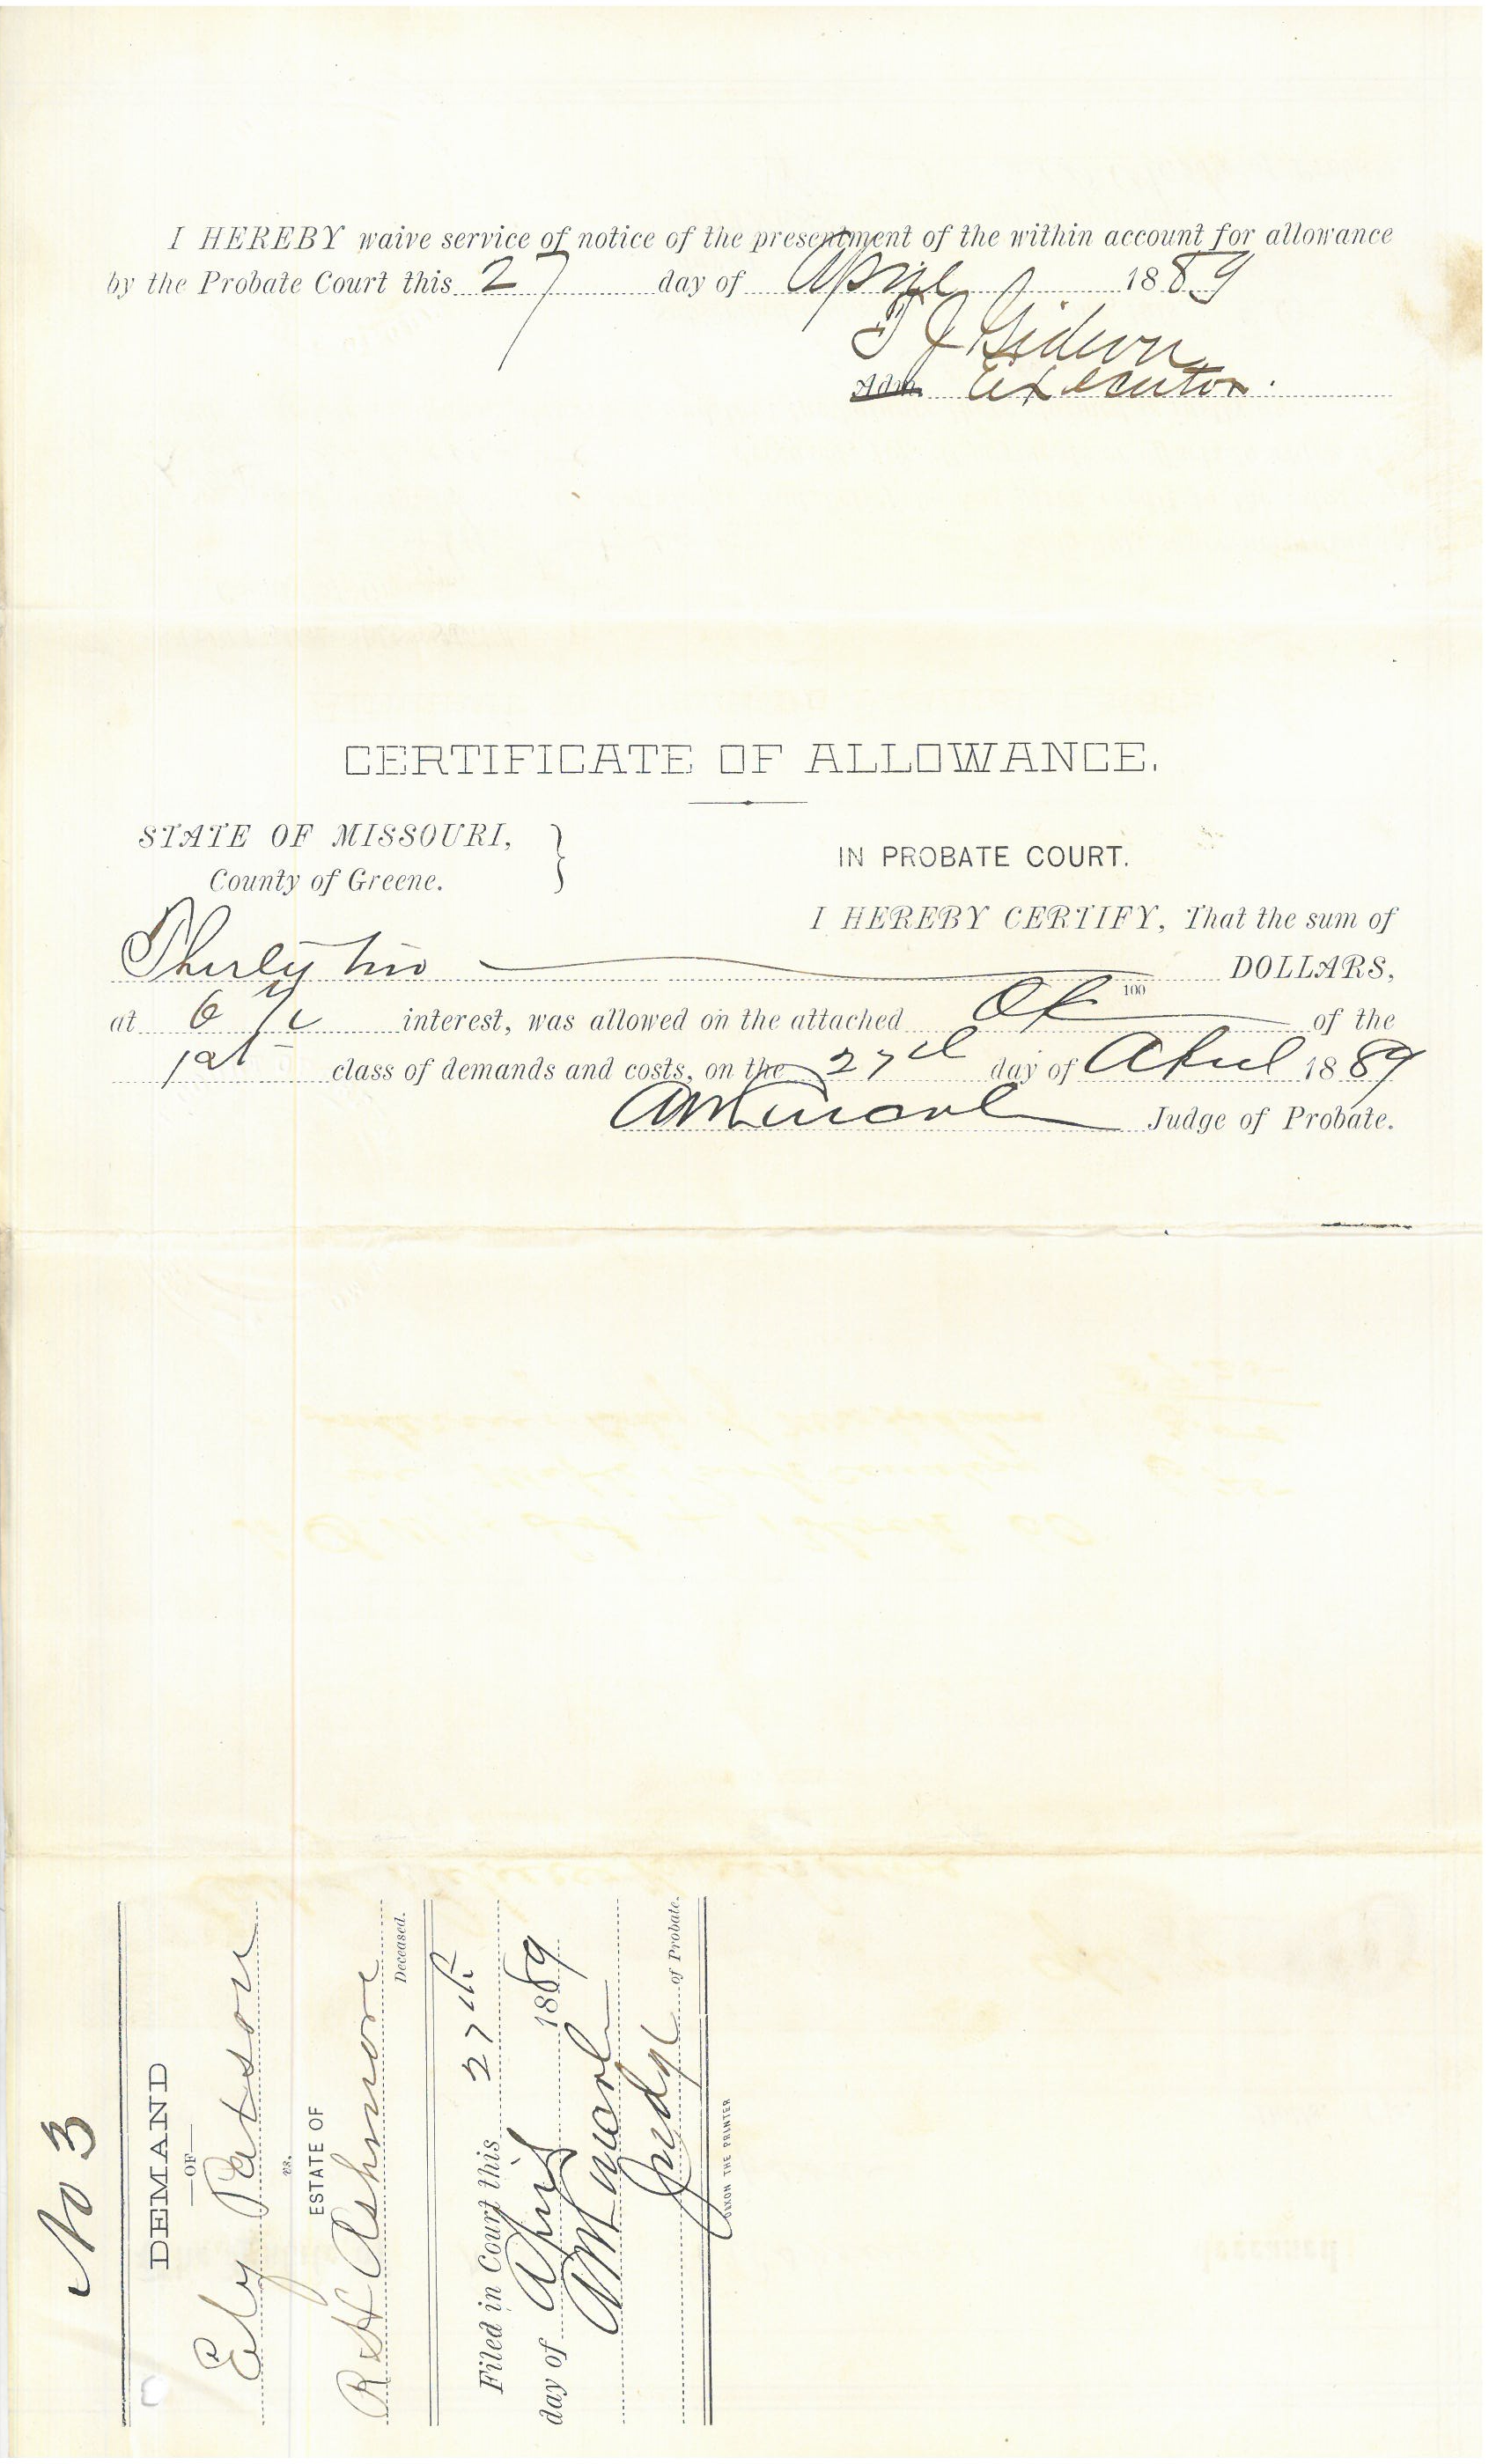 I HEREBY waive service of notice of the presentment of the within account for allowance
by the Probate Court this 27 day of April 1889
T J Gideon
Adm. Executor.
CERTIFICATE OF ALLOWANCE.
STATE OF MISSOURI,
County of Greene.
IN PROBATE COURT.
I HEREBY CERTIFY, That the sum of
Thirty two 100 DOLLARS,
at 6 % interest, was allowed on the attached of the
1st class of demands and costs, on the 27th day of April 1889
Judge of Probate.
No 3
DEMAND
—OF—
Ely Patson
vs.
ESTATE OF
R H Ashmore
Deceased.
Filed in Court this 27th
day of April 1889
Judge of Probate.
DIXON THE PRINTER